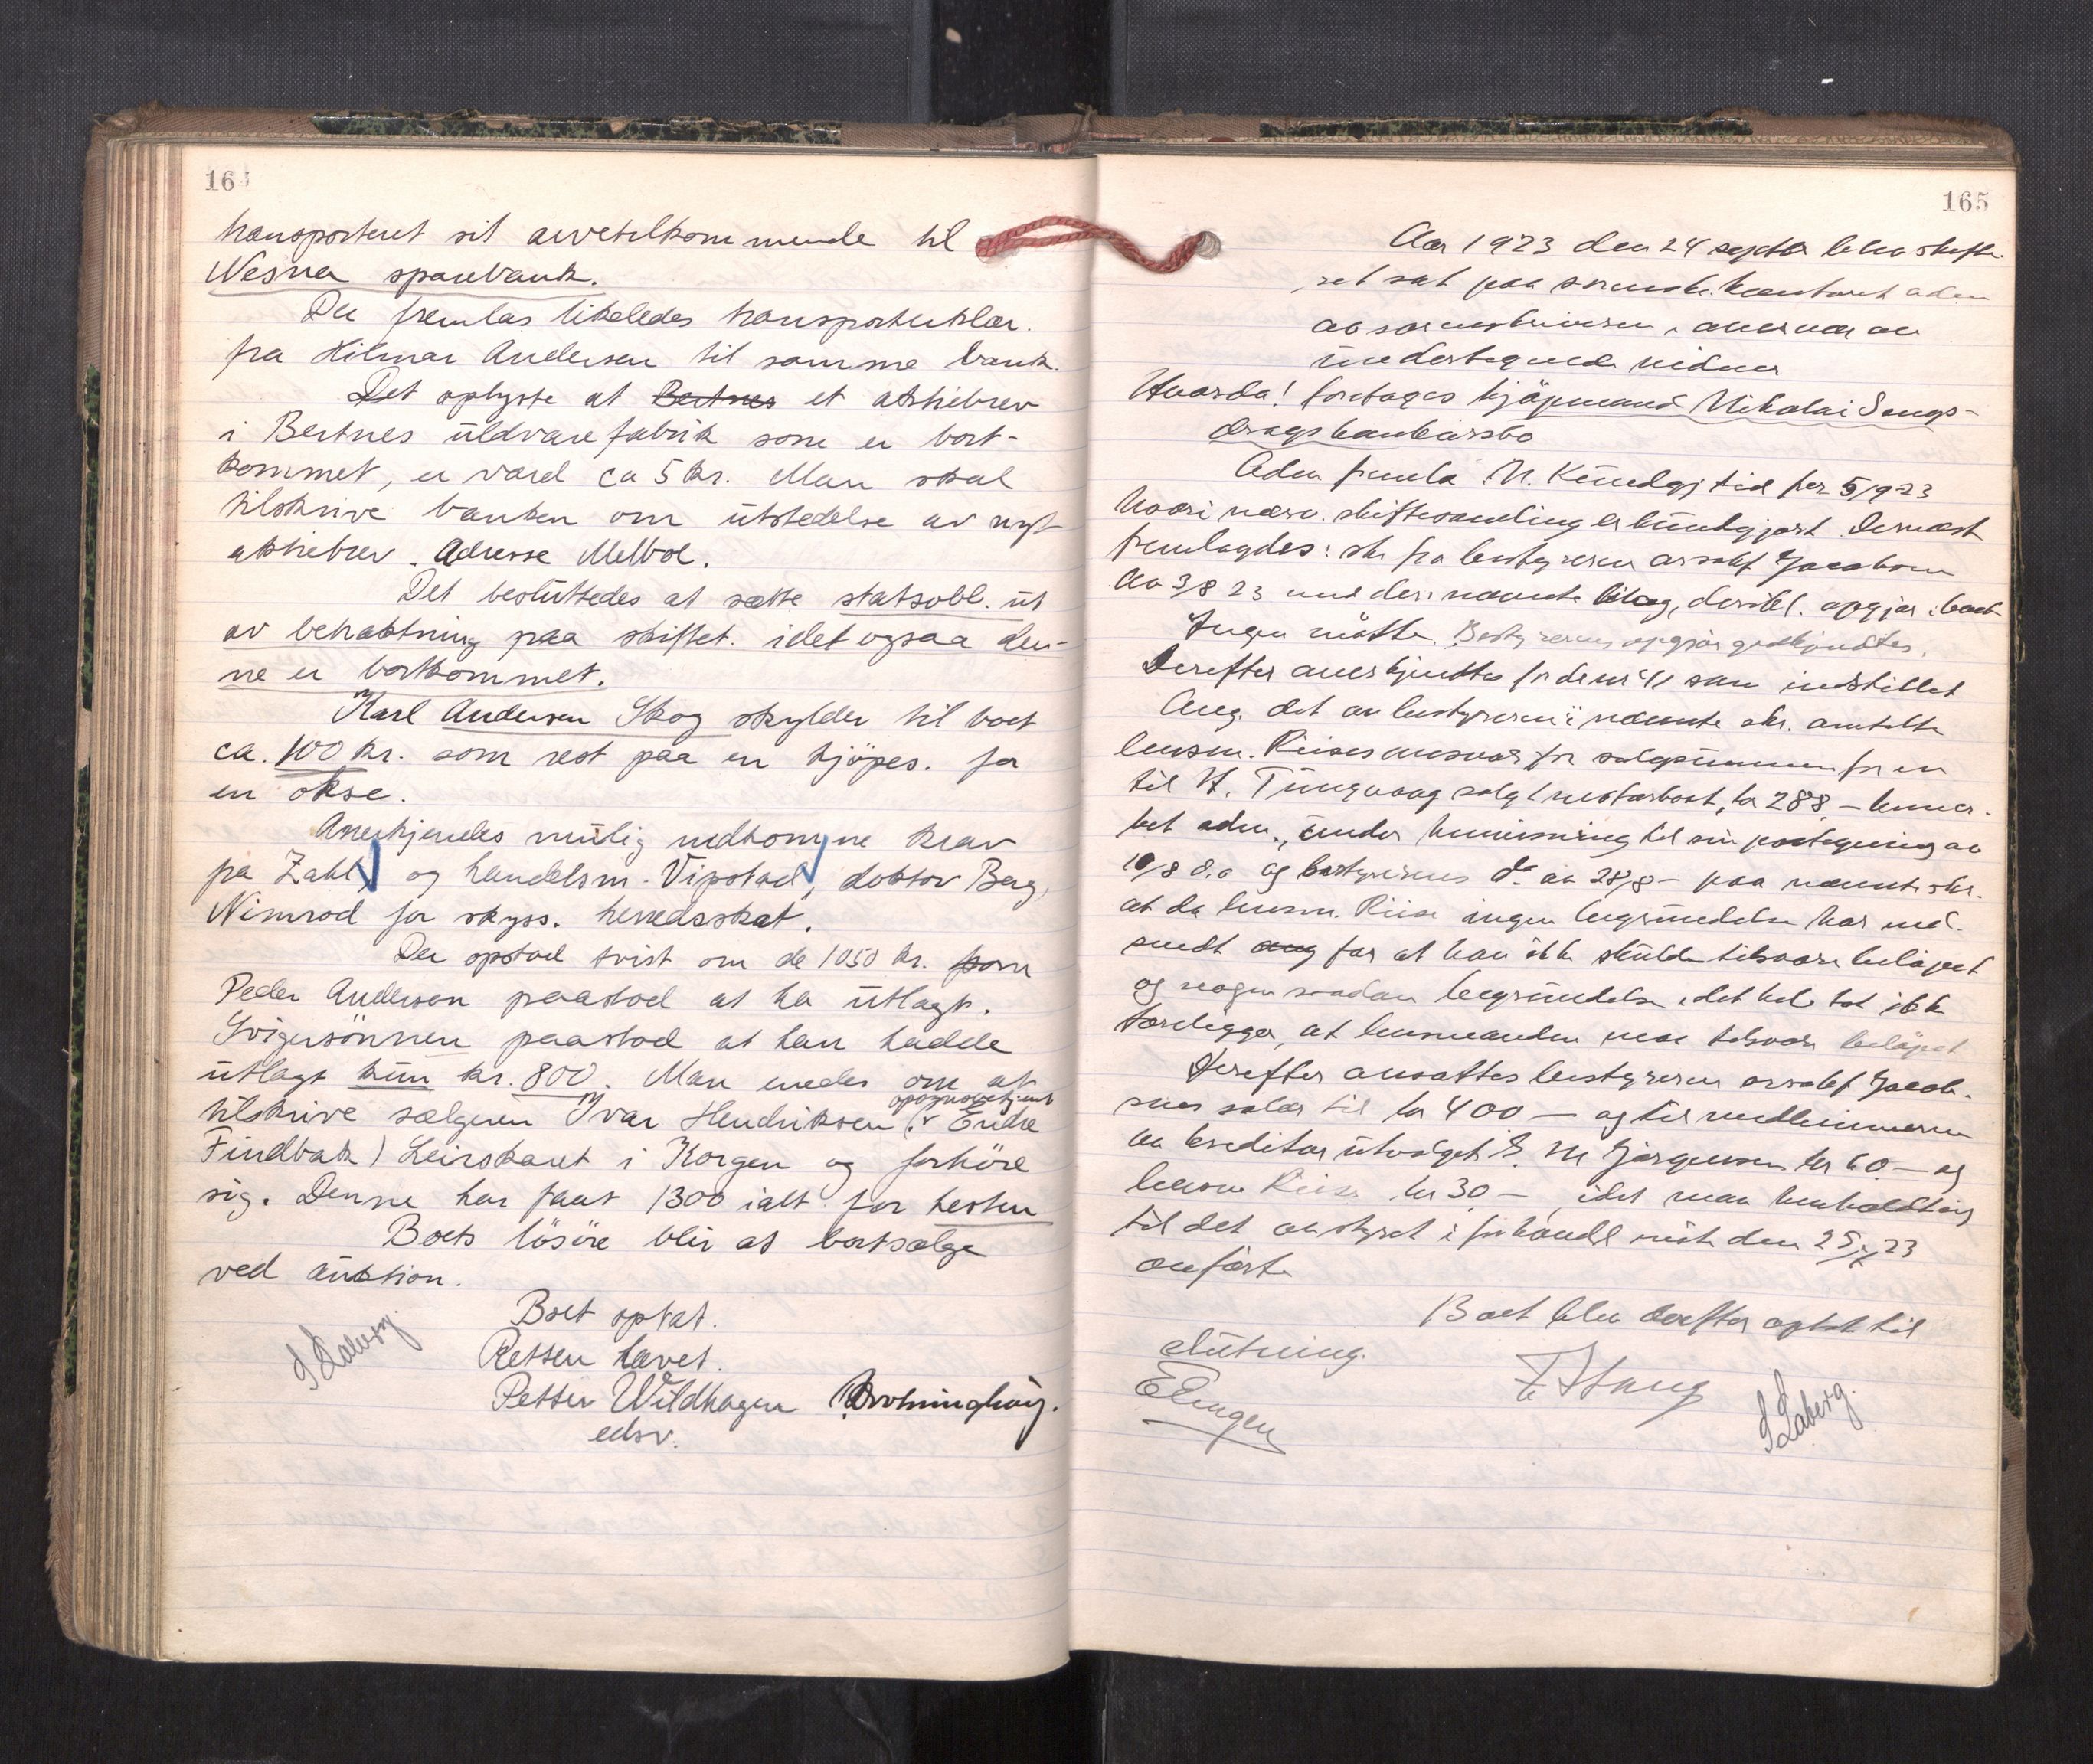 164
transporteret sit arvetilkommende til
Nesna sparebank.
Der fremlas likeledes transporterklær.
fra Hilmar Andersen til samme bank.
Det oplyste at Bertnes et aktiebrev
i Bertnes uldvarefabrik som er bort-
kommet, er værd ca 5 kr. Man skal
tilskrive banken om utstedelse av nyt
aktiebrev. Adresse Melbo.
Det besluttedes at sætte statsobl. ut
av betraktning paa skiftet. idet ogsaa den-
ne er bortkommet.
Karl Andersen Skog skylder til boet
ca. 100 kr. som rest paa en kjöpes. for
en okse.
Anerkjendes mulig nedkomne krav
fra Zahl, og handelsm. Vipstad, doktor Berg,
Nimrod for skyss. herredsskat.
Der opstod tvist om de 1050 kr. som
Peder Andersen paastod at ha utlagt.
Svigersönnen paastod at han hadde
utlagt kun kr. 800. Man enedes om at
tilskrive sælgeren Ivar Hendriksen (v Endre
Findbak) Leirskaret i Korgen og forhöre
sig. Denne har faat 1300 ialt for hesten
Boets lösöre blir at bortsælge
ved auktion.
Boet optat.
Retten hævet.
S Laberg
Petter Wildhagen
edsv.
165
Aar 1923 den 24 septbr blev skifte-
ret sat paa sorenskr. kontoret adm
av sorenskriveren i overvær av
undertegnede vidner
Hvorda! foretages kjöpmand Nikolai Sengs-
dragskonkursbo
Adm fremla N. Kundgj tid for 5/9 23
hvori nærv. skiftesamling er kundgjort. Dernæst
fremlagdes: skr fra bestyreren o.r.sakf Jacobsen
av 3/8 23 med deri nævnte bilag, deribl. opgjør i boet
Ingen mötte. Bestyrerens opgjør godkjendtes.
Derefter anerkjendtes fordr nr 41 som indstillet
Ang. det av bestyreren i nævnte skr. omtalte
lensm. Riises ansvar for salgssummen for en
til H. Tungvaag solgt motorbaat, kr 288 – bemer-
ket adm., under henvisning til sin paategning av
10/8 d.a og bestyrerens do av 28/8 – paa nævnte skr.
at da lensm. Riise ingen begrundelse har ned-
sendt ang for at han ikke skulde tilsvare belöpet
og nogen saadan begrundelse i det hele tat ikke
foreligger, at lensmanden maa tilsvare belöpet
Derefter ansattes bestyreren o.r.sakf Jacob-
sens salær til kr 400 – og til medlemmerne
av kreditorutvalget E. M Jörgensen kr 60 – og
lensm Riise kr 30 –, idet man henholdt sig
til det av styret i forhandl möte den 25/ 23
anförte
Boet blev derefter optat til
slutning.
S Laberg.